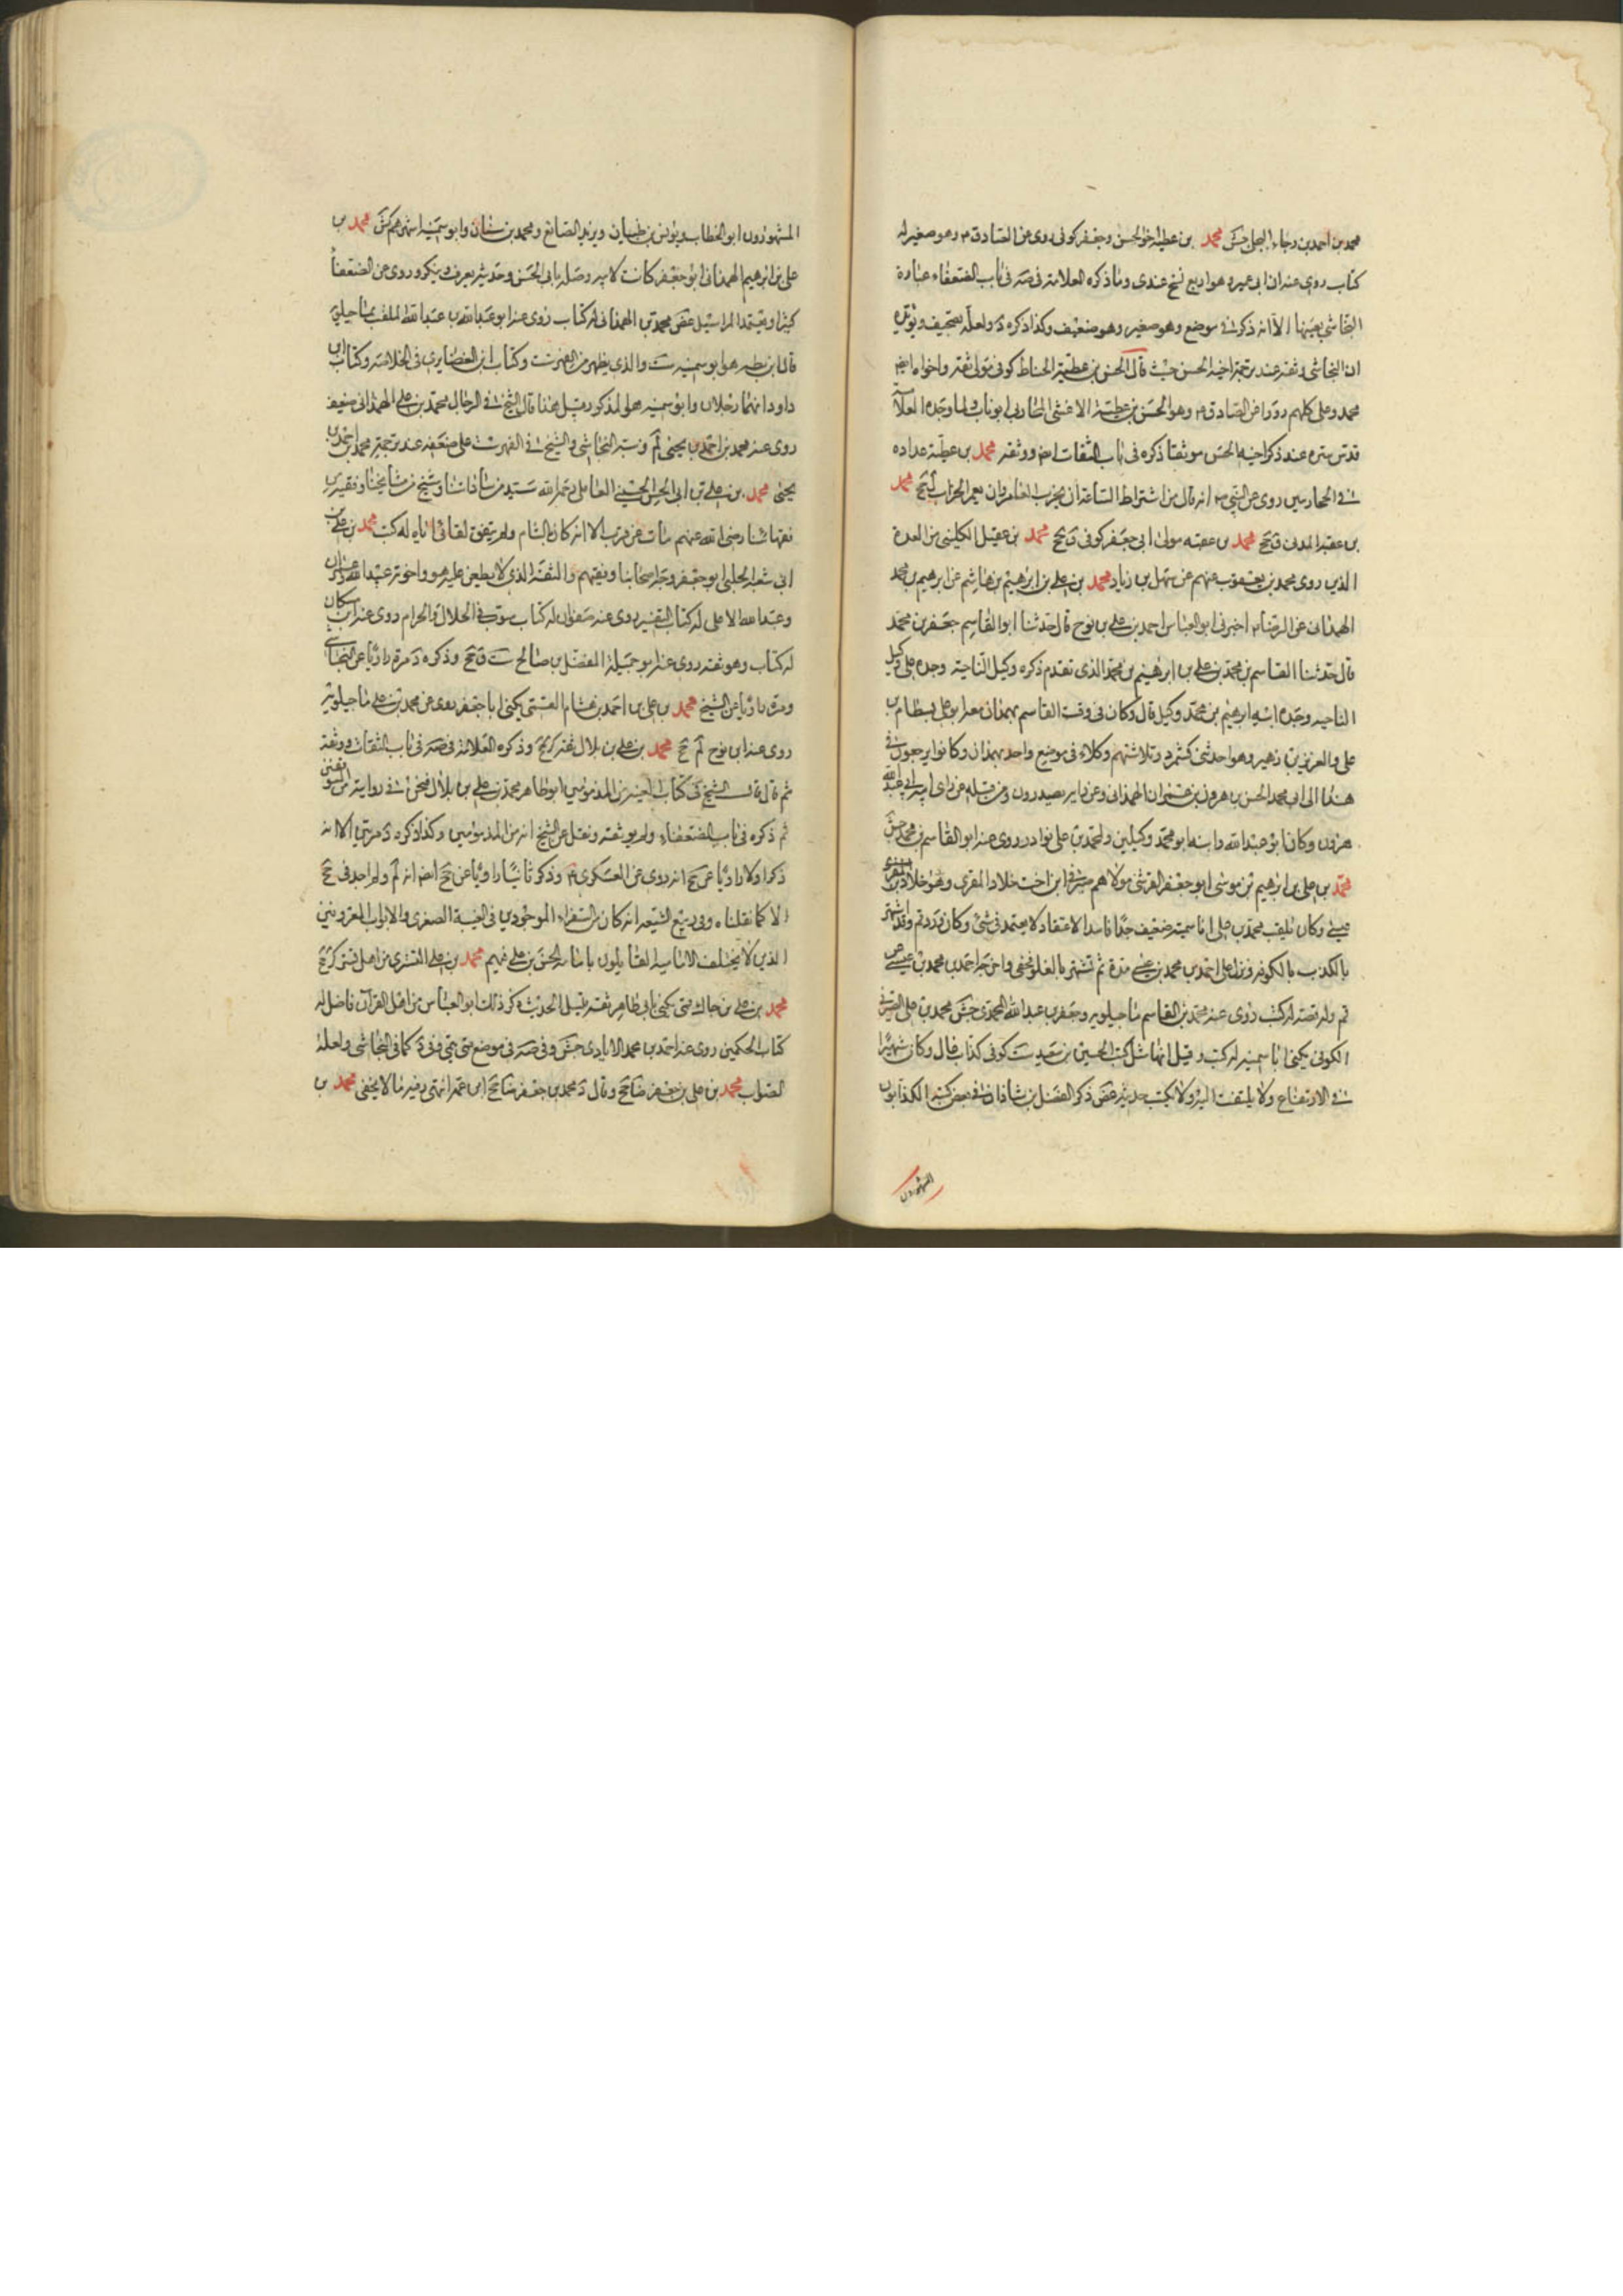 محمد بن احمد بن رجاء البجلي جش محمد بن عطية اخو الحسن وجعفر كوفي روى عن الصادق م وهو صغير له
كتاب روى عنه ابن ابي عمير وهو اربع نسخ عندي وما ذكره العلامة في صه في باب الضعفاء عبارة
النجاشي بعينها الا انه ذكر في موضع وهو صغير وهو ضعيف وكذا ذكره د ولعله تصحيف ويؤيده
ان النجاشي وثقه عند ترجمة اخيه الحسن حيث قال الحسن بن عطية الحناط كوفي مولى ثقة واخواه ايضا
محمد وعلي كلهم رووا عن الصادق م وهو الحسن بن عطية الاغشى ابو ناب وما وجده العلامة
قدس سره عند ذكر اخيه الحسن موثقا ذكره في باب الثقات ايضا ووثقه محمد بن عطية عداده
في روى عن النبي انه قال من اشتراط الساعة ان يخرب العامر وان يعمر الخراب محمد
بن عقبة المدني ق جخ محمد بن عقبه مولى ابي جعفر كوفي ق جخ محمد بن عقيل الكليني من العدة
الذين روى محمد بن يعقوب عنهم عن سهل بن زياد محمد بن علي بن ابرهيم بن هاشم عن ابرهيم بن محمد
الهمداني عن الرضا م اخبرني ابو العباس احمد بن علي بن نوح قال حدثنا ابو القاسم جعفر بن محمد
قال حدثنا القاسم بن محمد بن علي بن ابرهيم بن محمد الذي تقدم ذكره وكيل الناحية وجده علي وكيل
الناحيه وجد ابيه ابرهيم بن محمد وكيل قال وكان في وقت القاسم بهمدان معه ابو علي بسطام بن
علي والعزيز بن زهير وهو احد بني كشمرد وثلاثتهم وكلاء في موضع واحد بهمدان وكانوا يرجعون في
هذا الى ابي محمد الحسن بن هرون بن عمران الهمداني وعن رايه يصدرون ومن قبله عن راي ابيه ابي عبد الله
هرون وكان ابو عبد الله وابنه ابو محمد وكيلين ولمحمد بن علي نوادر روى عنه ابو القاسم بن محمد جش
محمد بن علي بن ابرهيم بن موسى ابو جعفر القرشي مولاهم صيرفي ابن اخت خلاد المقري وهو خلاد بن
عيسى وكان يلقب محمد بن علي ابا سمينه ضعيف جدا فاسد الاعتقاد لا يعتمد في شئ وكان ورد قم وقد اشتهر
بالكذب بالكوفه ونزل على احمد بن محمد بن عيسى مدة ثم تشهر بالغلو فخفي واخرجه احمد بن محمد بن عيسى عن
قم وله قصة له كتب روى عنه محمد بن القاسم ماجيلويه وجعفر بن عبد الله المحمدي جش محمد بن علي الصيرفي
الكوفي يكنى ابا سمينه له كتب وقيل انها مثل كتب الحسين بن سعيد ست كوفي كذاب غال وكان شهيرا
في الارتفاع ولا يلتفت اليه ولا يكتب حديثه غض ذكر الفضل بن شاذان في بعض كتبه الكذابون
المشهورون
المشهورون ابو الخطاب ويونس بن ظبيان ويزيد الصايغ ومحمد بن سنان وابو سمينه اشهرهم كش محمد بن
علي بن ابرهيم الهمداني ابو جعفر كانت لابيه وصلة بابي الحسن وحديثه يعرف وينكر وروى عن الضعفاء
كثيرا ويعتمد المراسيل غض محمد بن الهمداني له كتاب روى عنه ابو عبد الله بن عبد الله الملقب بماجيلويه
قال ابن طه هو ابو سمينه ست والذي يظهر من الفهرست وكتاب ابن الغضايري في الخلاصة وكتاب ابن
داود انهما رجلان وابو سمينه هو المذكور قبل هذا قال الشيخ في الرجال محمد بن علي الهمداني ضعيف
روى عنه محمد بن احمد بن يحيى لم ونبه النجاشي والشيخ في الفهرست على ضعفه عند ترجمة محمد بن احمد بن
يحيى محمد بن علي بن ابي الحسن الحسيني العاملي رحمه الله سيد من ساداتنا وشيخ من مشايخنا وفقيه من
فقهائنا رضي الله عنهم مات عن قرب الا انه كان بالشام ولم يتفق لقائي اياه له كتب محمد بن علي بن
ابي شعبه الحلبي ابو جعفر وجه اصحابنا وفقيههم والثقة الذي لا يطعن عليه هو واخوته عبيد الله وعمران
وعبد الاعلى له كتاب التفسير روى عنه صفوان له كتاب مبوب في الحلال والحرام روى عنه ابن مسكان
له كتاب وهو ثقه روى عنه ابو جميله المفضل بن صالح ست ق جخ وذكره د مرة راويا عن النجاشي
ومرة راويا عن الشيخ محمد بن علي بن احمد بن هشام القمي يكنى ابا جعفر روى عن محمد بن علي ماجيلويه
روى عنه ابن نوح لم جخ محمد بن علي بن بلال ثقة كر جخ وذكره العلامة في صه في باب الثقات ووثقه
ثم قال قال الشيخ في كتاب الغيبة من المذمومين ابو طاهر محمد بن علي بن بلال فنحن في روايته من المتوقفين
ثم ذكره في باب الضعفاء ولم يوثقه ونقل عن الشيخ انه من المذمومين وكذا ذكره د مرتين الا انه
ذكر اولا راويا عن جخ انه روى عن العسكري م وذكر ثانيا راويا عن جخ ايضا انه لم ولم اجد في جخ
الا كما نقلناه وفي ربيع الشيعه انه كان من السفراء الموجودين في الغيبة الصغرى والابواب المعروفين
الذين لا يختلف الاماميه القايلون بامامة الحسن بن علي فيهم محمد بن علي القسري من اهل قم كر جخ
محمد بن علي بن جاك قمي يكنى بابي طاهر ثقه قليل الحديث ذكر ذلك ابو العباس من اهل القرآن فاضل له
كتاب الحكمين روى عنه احمد بن محمد الايادي جش وفي صه في موضع قمي وفي د كما في النجاشي ولعله
الصواب محمد بن علي بن جعفر ضا جخ وقال د محمد بن جعفر ضا جخ ابن عمر انتهى وفيه ما لا يخفى محمد بن